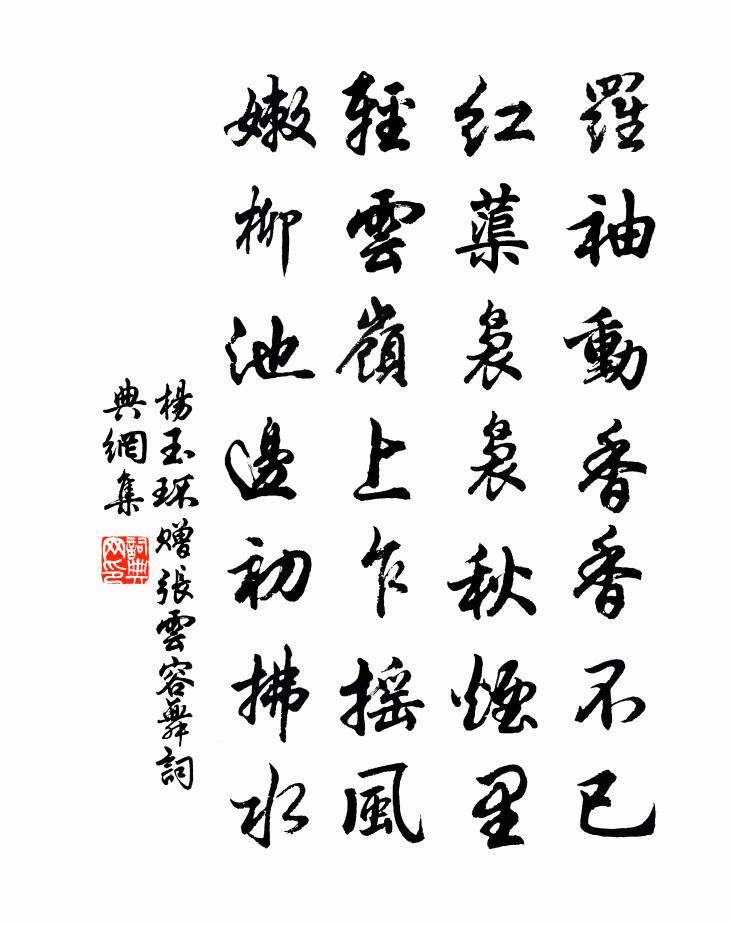 羅袖動香香不已
紅蕖裊裊秋煙里
輕雲嶺上乍摇風
嫩柳池邊初拂水
楊玉环贈張雲容舞詞
典網集
詞典网印